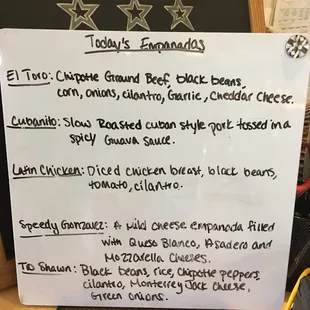 Today's Empanadas
El Toro: Chipotle Ground Beef, black beans,
corn, onions, cilantro, Garlic, Cheddar Cheese.
Cubanito: Slow Roasted cuban style pork tossed in a
spicy Guava sauce.
Latin Chicken: Diced chicken breast, black beans,
tomato, cilantro.
Speedy Gonzalez: A mild cheese empanada filled
with Queso Blanco, Asadero and
Mozzarella Cheeses.
Tio Shawn: Black beans, rice, Chipotle peppers,
cilantro, Monterrey Jack Cheese,
Green onions.